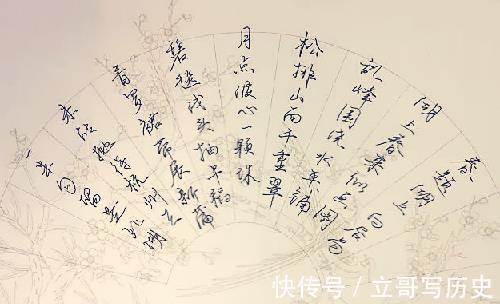 春题湖上
湖上春来似画图
乱峰围绕水平铺
松排山面千重翠
月点波心一颗珠
碧毯线头抽早稻
青罗裙带展新蒲
未能抛得杭州去
一半勾留是此湖
快传号 / 立哥写历史